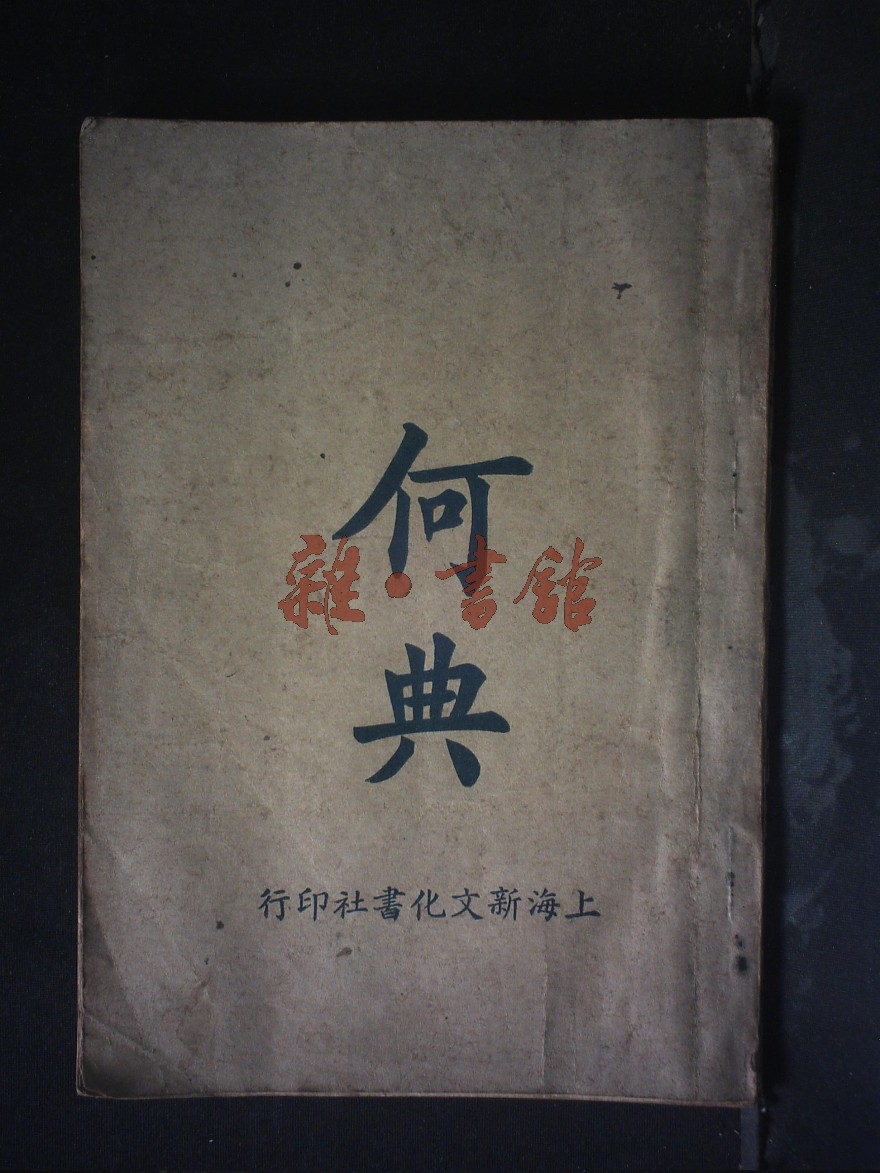 何
雜·書館
典
上海新文化書社印行